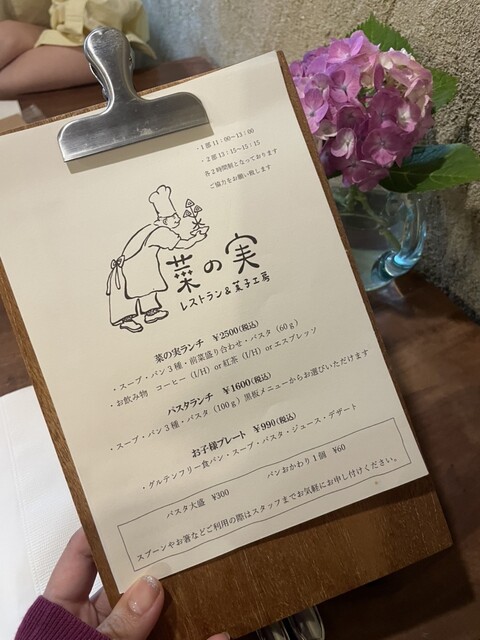 ・1部11：00～13：00
・2部13：15～15：15
各2時間制となっております
ご協力をお願い致します
菜の実
レストラン＆菓子工房
菜の実ランチ ¥2500(税込)
・スープ・パン3種・前菜盛り合わせ・パスタ(60g)
・お飲み物 コーヒー(I/H)or紅茶(I/H)orエスプレッソ
パスタランチ ¥1600(税込)
・スープ・パン3種・パスタ(100g)黒板メニューからお選びいただけます
お子様プレート ¥990(税込)
・グルテンフリー食パン・スープ・パスタ・ジュース・デザート
パスタ大盛 ¥300 パンおかわり1個 ¥60
スプーンやお箸などご利用の際はスタッフまでお気軽にお申し付けください。